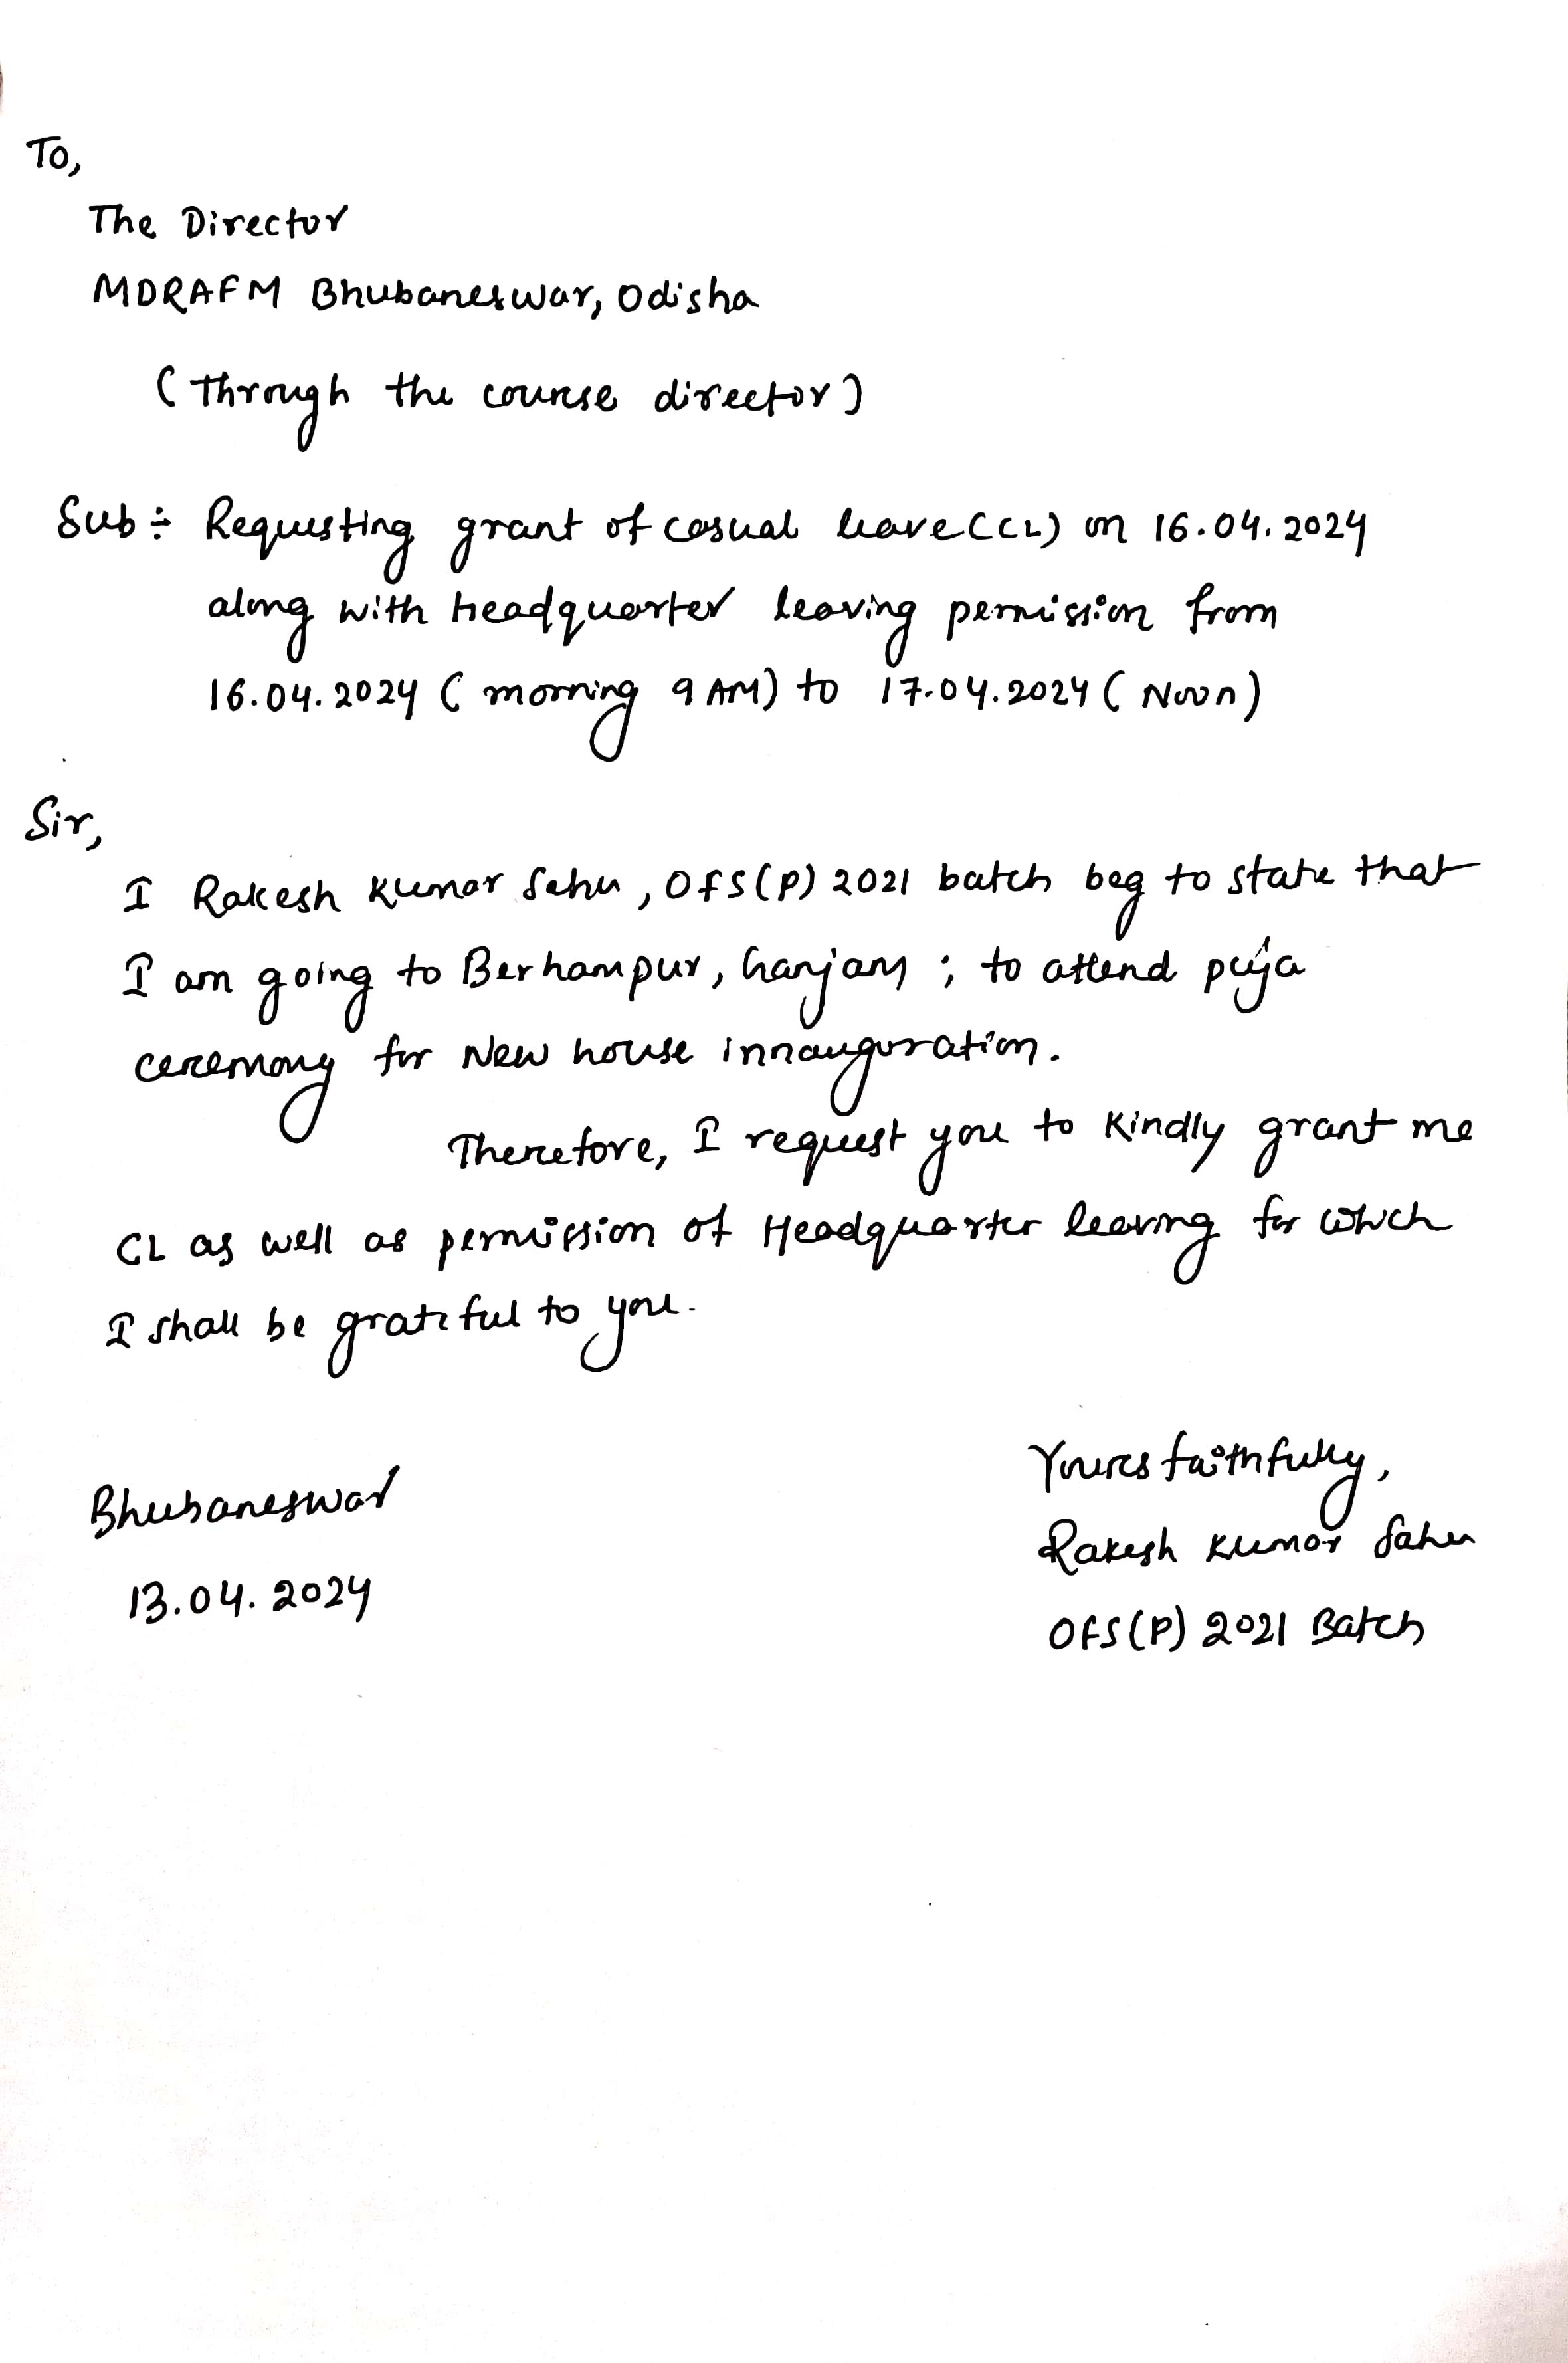 To,
The Director
MDRAFM Bhubaneswar, Odisha
(Through the course director)
Sub ÷ Requesting grant of casual leave (CL) on 16.04.2024
along with headquarter leaving permission from
16.04.2024 (morning 9 AM) to 17.04.2024 (Noon)
Sir,
I Rakesh Kumar Sahu, OFS(P) 2021 batch beg to state that
I am going to Berhampur, Ganjam ; to attend puja
ceremony for New house innauguration.
Therefore, I request you to kindly grant me
CL as well as permission of Headquarter leaving for which
I shall be grateful to you.
Yours faithfully,
Bhubaneswar
Rakesh Kumar Sahu
13.04.2024
OFS(P) 2021 Batch